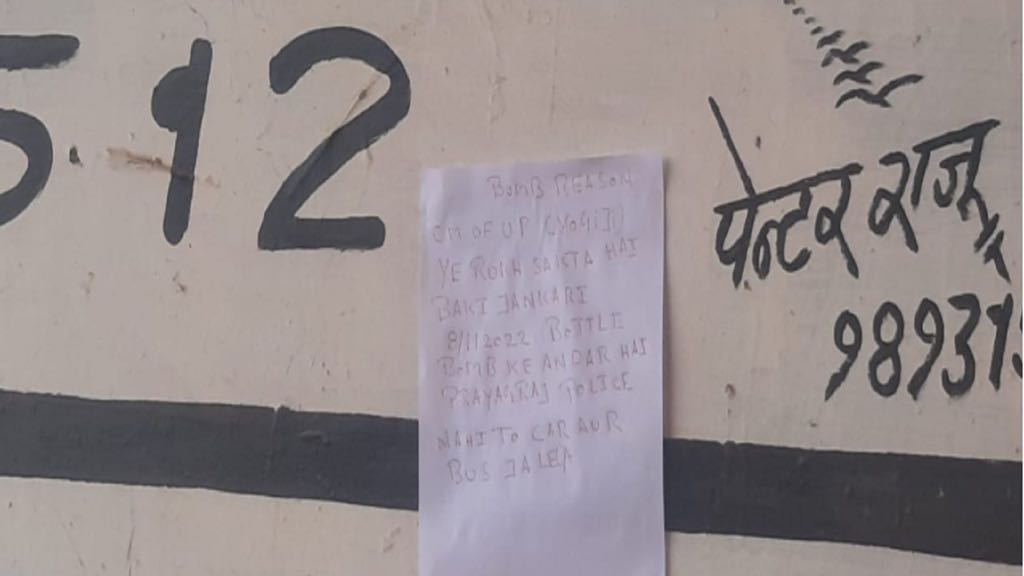 5.12
BOMB REASON
CM OF UP (YOGIJI)
YE ROKH SAKTA HAI
BAKI JANKARI
8/1/2022 BOTTLE
BOMB KE ANDAR HAI
PRAYAGRAJ POLICE
NAHI TO CAR AUR
BUS JALEA
पेन्टर राजू
98931